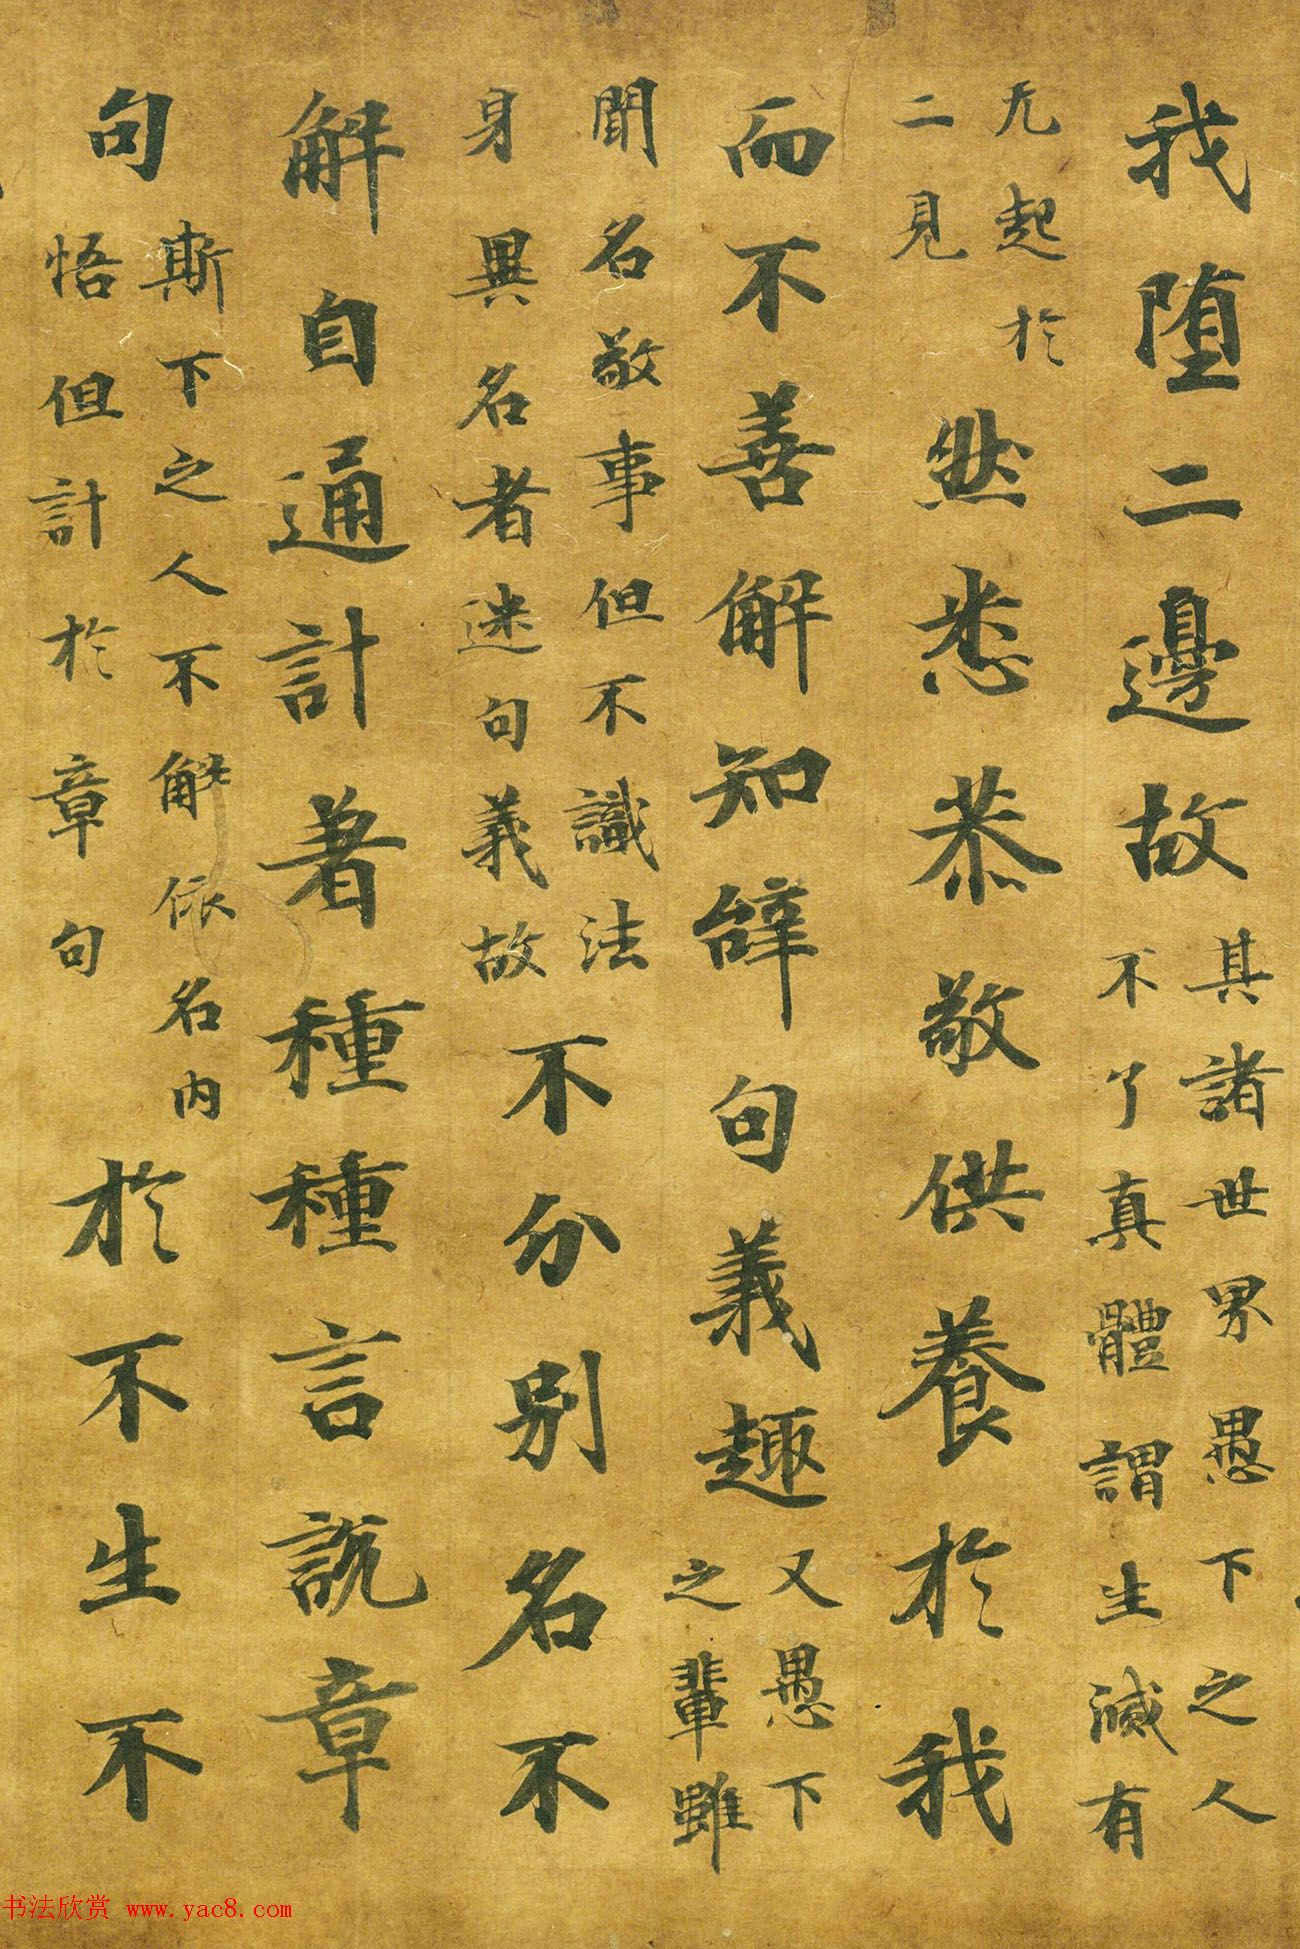 我堕二邊故其諸世界愚下之人
不了真體謂生滅有
无起於
二見
然悉恭敬供養於我
而不善解知辝句義趣又愚下
之輩雖
聞名敬事但不識法
身異名者迷句義故
不分別名不
解自通計著種種言說章
句
斯下之人不解依名内
悟但計於章句
於不生不
书法欣赏 www.yac8.com